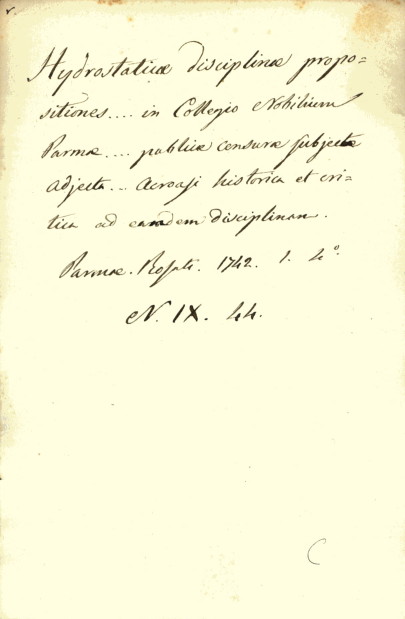 Hydrostaticæ disciplinæ propo-
sitiones.... in Collegio Nobilium
Parmæ.... publicæ censuræ subjectæ
adjecta... acroasi historica et cri-
tica ad eamdem disciplinam.
Parmæ. Rosati. 1742. 1. 4°.
N. IX. 44.
C